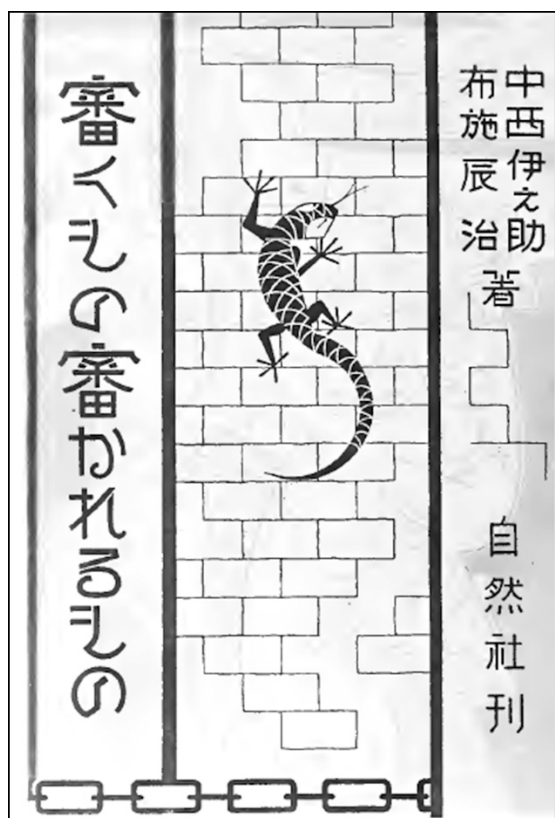 中西伊之助
布施辰治 著
自然社刊
審くもの審かれるもの